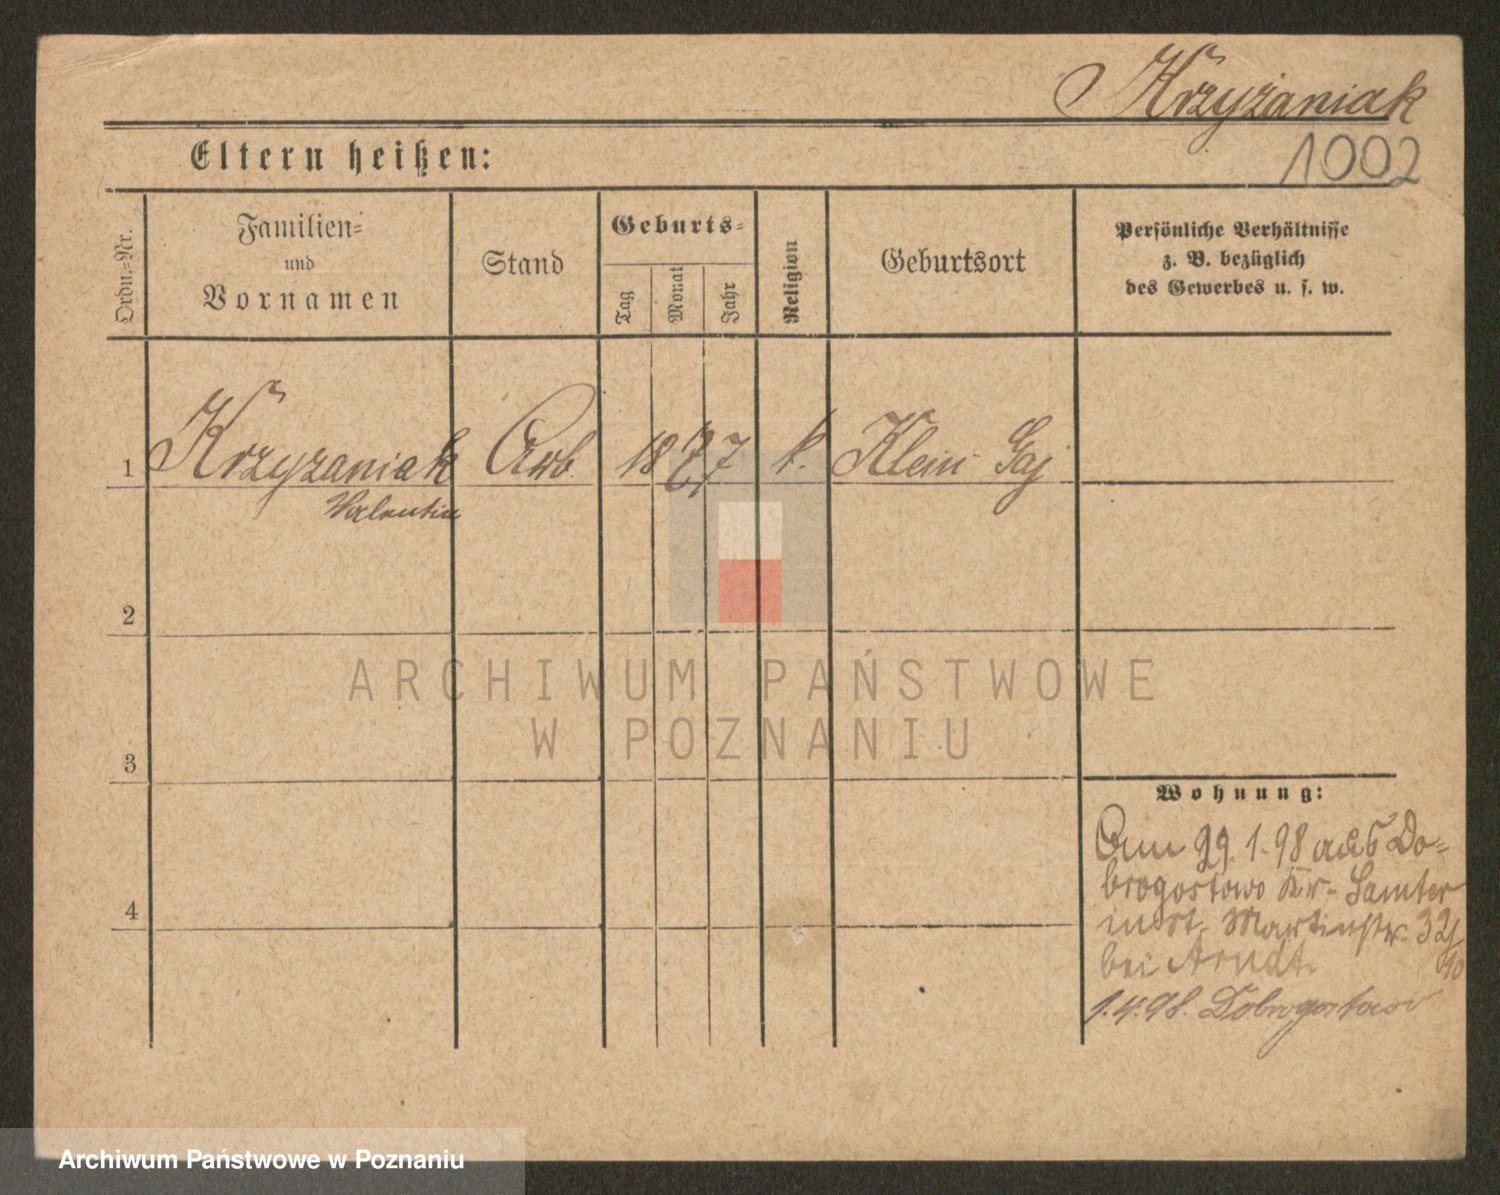 Krzyżaniak
1002
Eltern heißen:
Ordn.-Nr.
Familien-
und
Vornamen
Stand
Geburts-
Tag
Monat
Jahr
Religion
Geburtsort
Persönliche Verhältnisse
z. B. bezüglich
des Gewerbes u. s. w.
1 Krzyzaniak Arb. 18 7 k. Klein Gaj
Valentin
2
3
4
ARCHIWUM PAŃSTWOWE
W POZNANIU
Wohnung:
Am 29. 1. 98 aus Do-
brogostowo Kr. Samter
Martinstr. 32/
10
bei Arndt.
1.4.98. Dobrogostowo
Archiwum Państwowe w Poznaniu